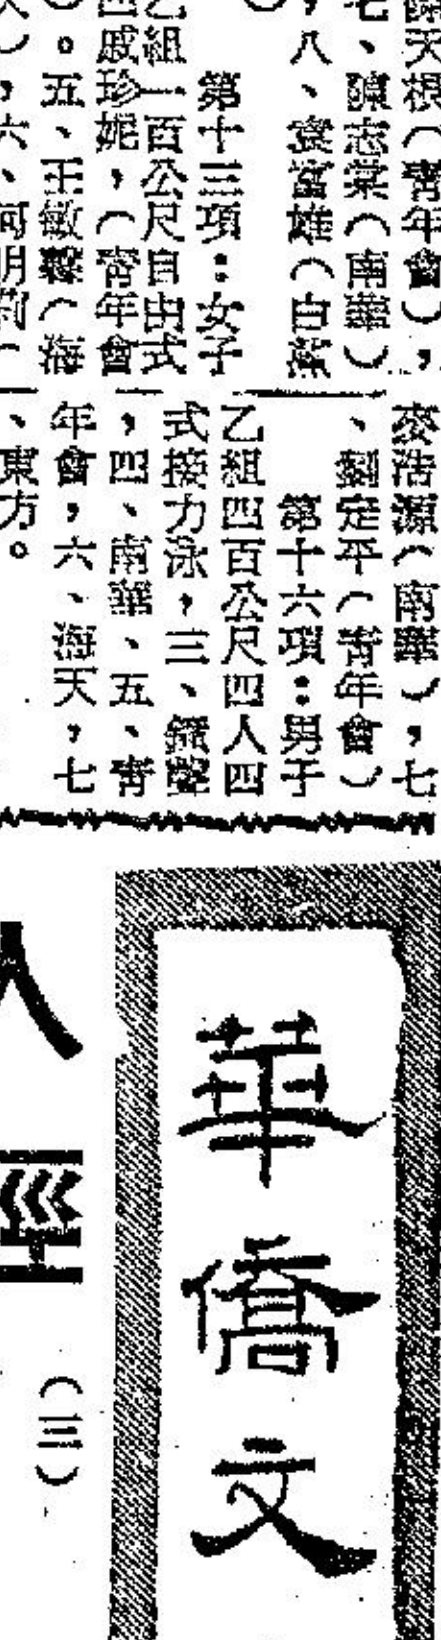 陳天根（青年會），
七、陳志棠（南華）
，八、袁富雄（白鯊
）
第十三項：女子
乙組一百公尺自由式
四戚珍妮，（青年會
）。五、王敏馨（海
，六、何明莉（
麥浩源（南華），七
、劉定平（青年會）
第十六項：男子
乙組四百公尺四人四
式接力泳，三、鐘聲
，四、南華、五、青
年會，六、海天，七
、東方。
華僑文
人
徑
（三）